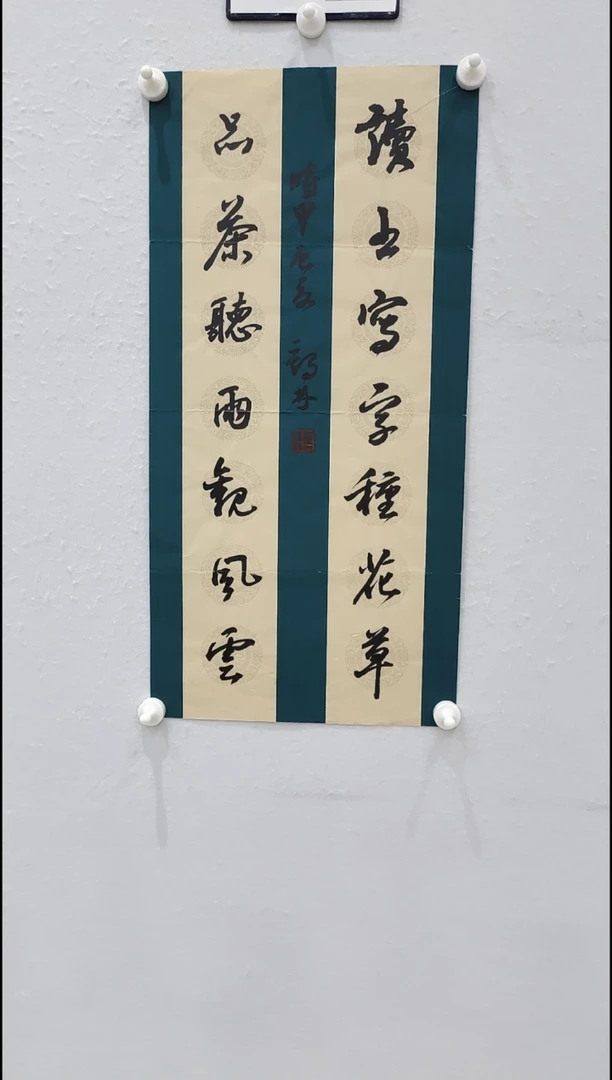 讀書寫字種花草
品茶聽雨觀風雲
時甲辰